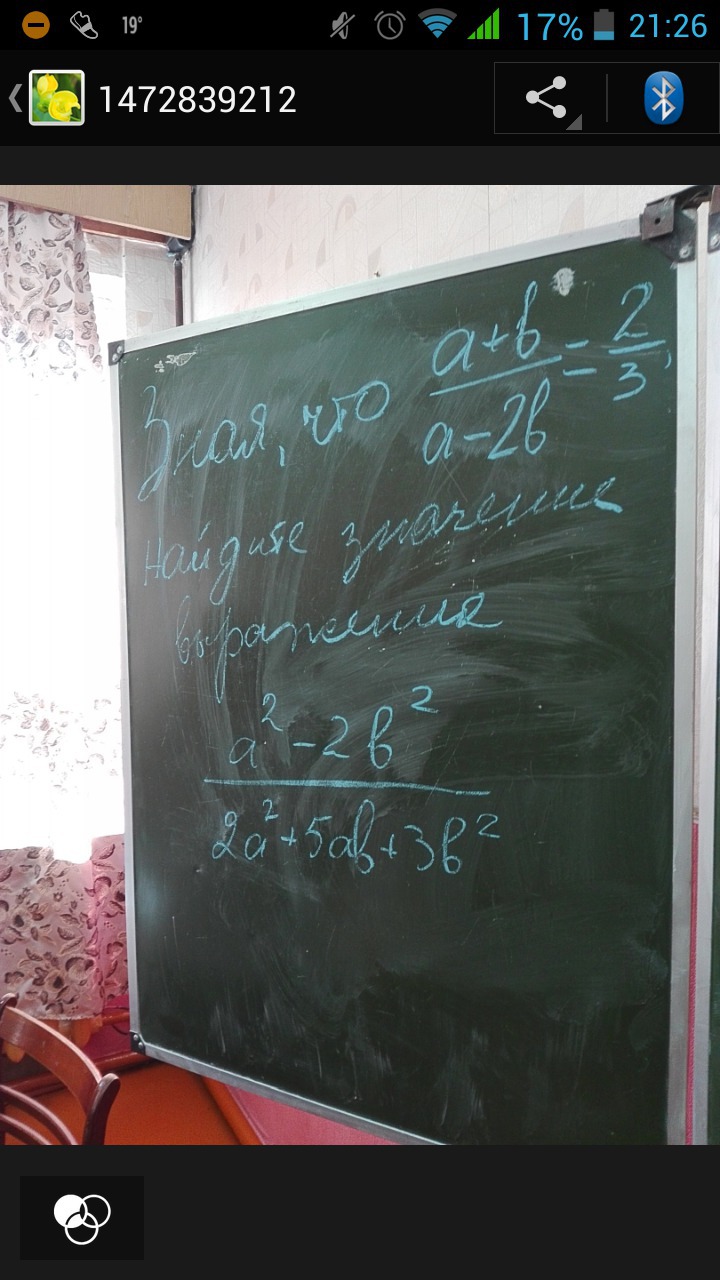 19°
17% 21:26
1472839212
Зная, что (a+b)/(a-2b) = 2/3,
найдите значение
выражения
(a²-2b²)/(2a²+5ab+3b²)